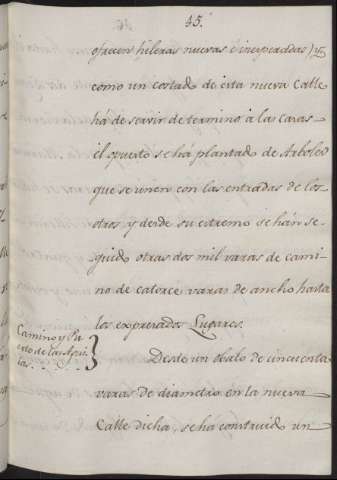 45.
ofrecen hileras nuevas é inesperadas) y
como un costado de esta nueva Calle
há de servir de termino á las casas
él opuesto se há plantado de Arboles
que se unen con las entradas de los
otros y desde su extremo se hán se-
guido otras dos mil varas de cami-
no de catorce varas de ancho hasta
los expresados Lugares.
Camino y Pa-
seo de las Aguí-
las.
Desde un óbalo de cincuenta
varas de diametro en la nueva
Calle dicha, se há construido un